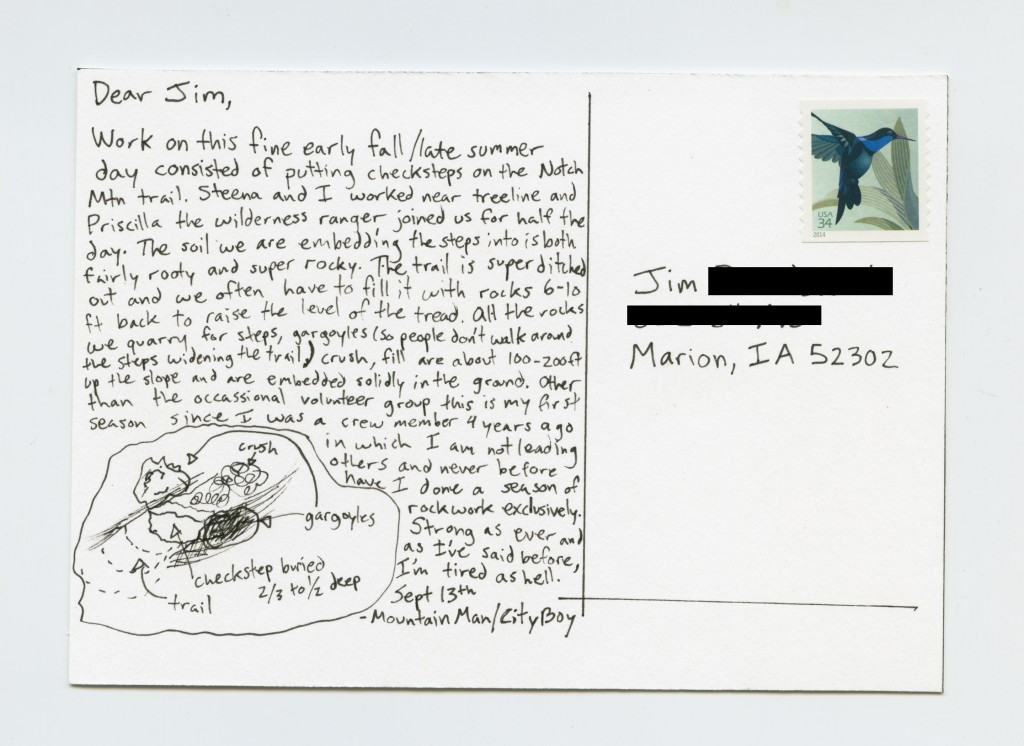 Dear Jim,
Work on this fine early fall/late summer
day consisted of putting checksteps on the Notch
Mtn trail. Steena and I worked near treeline and
Priscilla the wilderness ranger joined us for half the
day. The soil we are embedding the steps into is both
fairly rooty and super rocky. The trail is super ditched
out and we often have to fill it with rocks 6-10
ft back to raise the level of the tread. All the rocks
we quarry for steps, gargoyles (so people don't walk around
the steps widening the trail,) crush, fill are about 100-200ft
up the slope and are embedded solidly in the ground. Other
than the occassional volunteer group this is my first
season since I was a crew member 4 years ago
in which I am not leading
others and never before
have I done a season of
rockwork exclusively.
Strong as ever and
as I've said before,
I'm tired as hell.
Sept 13th
-Mountain Man/City Boy
crush
gargoyles
checkstep buried
2/3 to 1/2 deep
trail
USA
34
2014
Jim
Marion, IA 52302